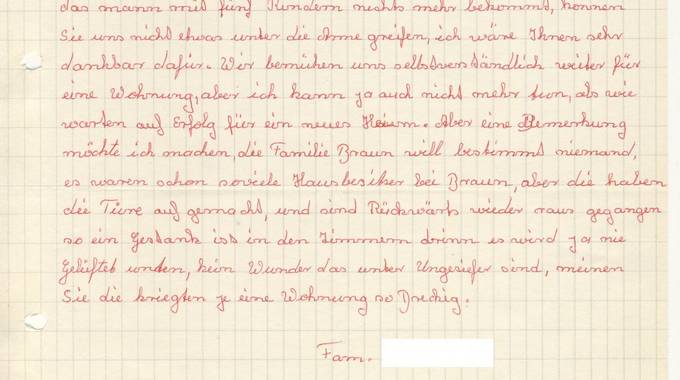 das mann mit fünf Kindern nichts mehr bekommt, können
Sie uns nicht etwas unter die Arme greifen, ich wäre Ihnen sehr
dankbar dafür. Wir bemühen uns selbstverständlich weiter für
eine Wohnung, aber ich kann ja auch nicht mehr tun, als wie
warten auf Erfolg für ein neues Heim. Aber eine Bemerkung
möchte ich machen, die Familie Braun will bestimmt niemand,
es waren schon soviele Hausbesitzer bei Braun, aber die haben
die Türe auf gemacht, und sind Rückwärts wieder raus gegangen
so ein Gestank ist in den Zimmern drinn es wird ja nie
Gelüftet unten, kein Wunder das unter Ungeziefer sind, meinen
Sie die kriegten je eine Wohnung so Dreckig.
Fam.